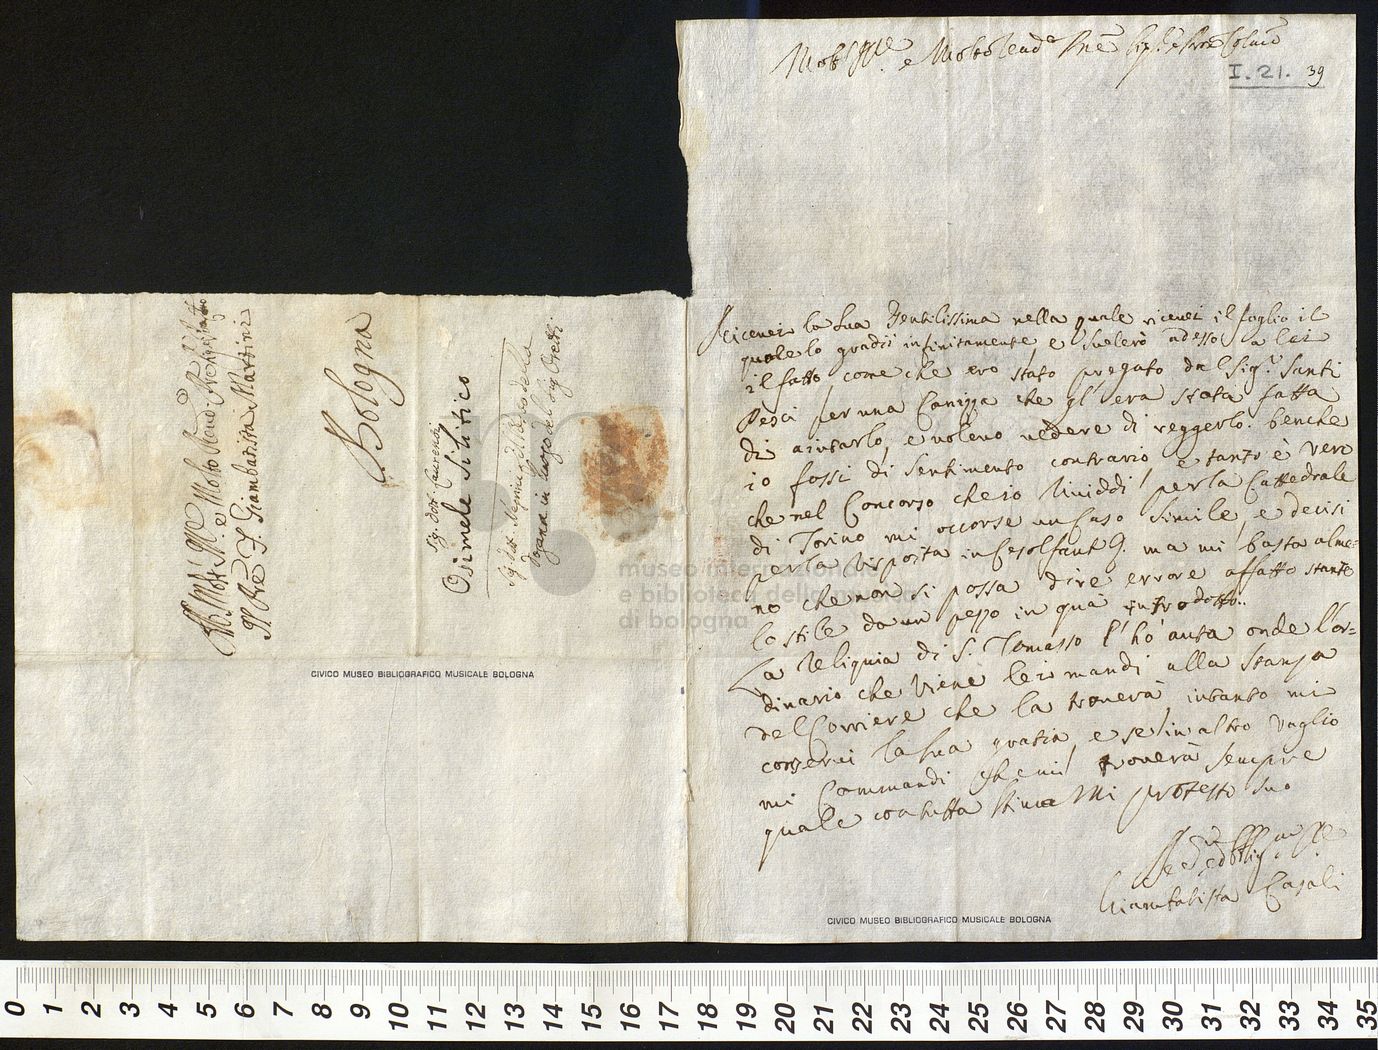 Molto Ill.re e Molto Rend.o P.ne Sig.r e Pron Col.mo
I. 21. 39
Riceuei la sua Gentilissima nella quale riceuei il foglio il
quale lo gradij infinitamente e suelerò adesso a lei
il fatto come che ero stato pregato dal Sig.r Santi
Pesci per una Canizza che gl'era stata fatta
di aiutarlo, e voleuo uedere di reggerlo benche
io fossi di sentimento contrario, e tanto è vero
che nel Concorso che io Uiddi per la Cattedrale
di Torino mi occorse un Caso simile, e decisi
per la risposta in Cesolfaut g. ma mi basta alme=
no che non si possa dire errore affatto stante
lo stile da un pezzo in quà introdotto..
La Reliquia di S. Tomasso l'hò auta onde l'or=
dinario che viene lei mandi alla stanza
del Corriere che la trouerà, intanto mi
conserui la sua gratia, e se in altro vaglio
mi Commandi che mi trouerà sempre
quale con tutta stima Mi protesto suo
Giambatista Casali
Giambattista Martini
Bologna
Sig. Dot. Laurenti
Osimele Silitico
in luogo del Sig
museo internazionale
e biblioteca della musica
di bologna
CIVICO MUSEO BIBLIOGRAFICO MUSICALE BOLOGNA
CIVICO MUSEO BIBLIOGRAFICO MUSICALE BOLOGNA
0 1 2 3 4 5 6 7 8 9 10 11 12 13 14 15 16 17 18 19 20 21 22 23 24 25 26 27 28 29 30 31 32 33 34 35